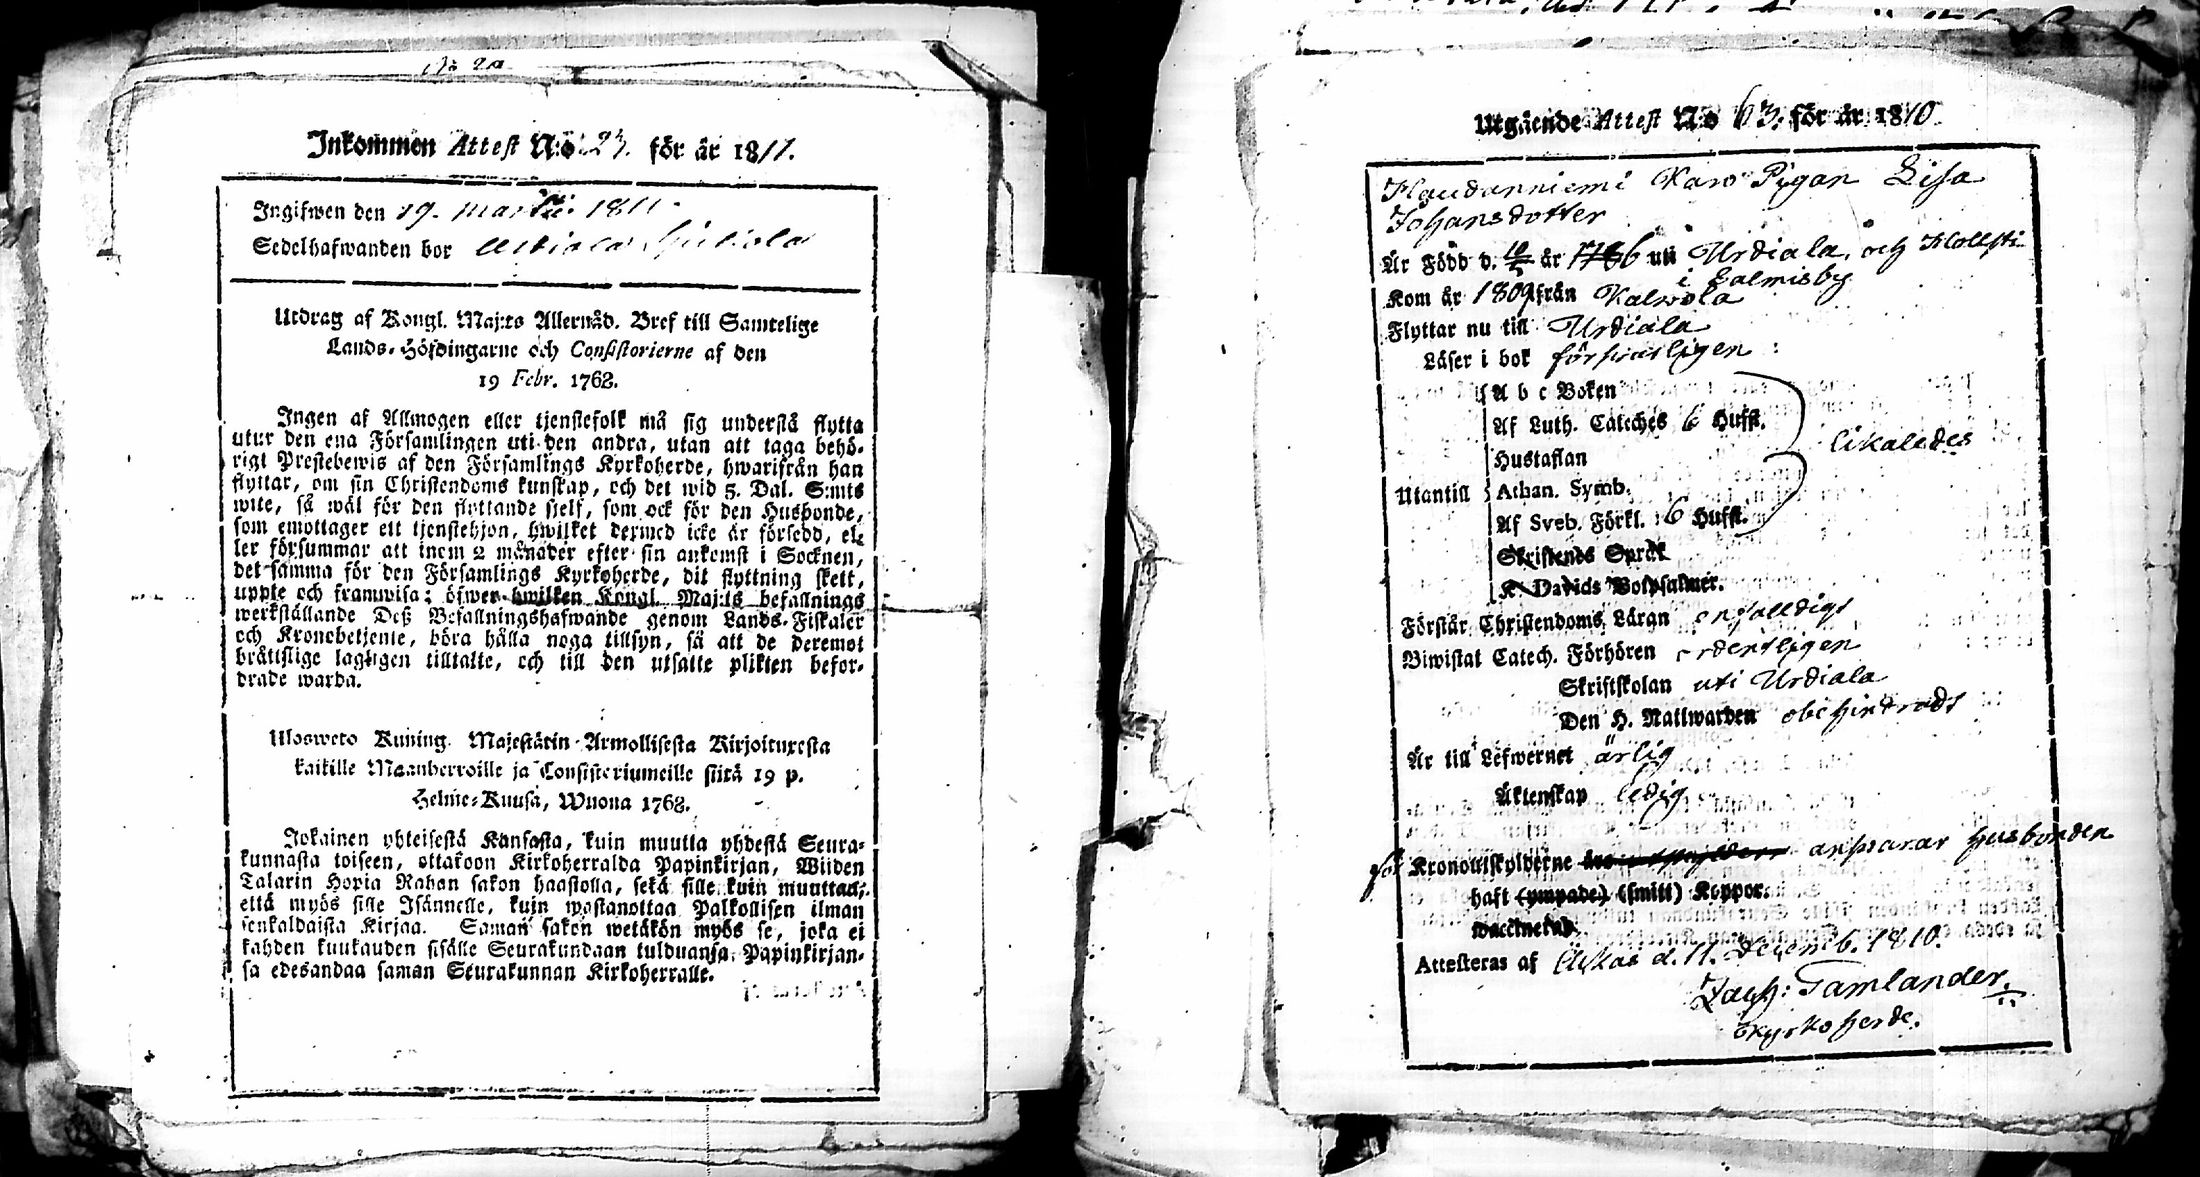 No 20
Inkommen Attest N:o 23. för är 1811.
Ingifwen den 19. Martii 1811.
Sedelhafwanden bor Urdiala
Utdrag af Kongl. Maj:ts Allernåd. Bref till Samtelige
Lands-Höfdingarne och Consistorierne af den
19 Febr. 1768.
Ingen af Allmogen eller tjenstefolk må sig understå flytta
utur den ena Församlingen uti den andra, utan att taga behö-
rigt Prestebewis af den Församlings Kyrkoherde, hwarifrån han
flyttar, om sin Christendoms kunskap, och det wid 5. Dal. S:mts
wite, så wäl för den flyttande sjelf, som ock för den Husbonde,
som emottager ett tjenstehjon, hwilket dermed icke är försedd, el-
ler försummar att inom 2 månader efter sin ankomst i Socknen,
det samma för den Församlings Kyrkoherde, dit flyttning skett,
uppte och framwisa; öfwer hwilken Kongl. Maj:ts befallnings
werkställande Deß Befallningshafwande genom Lands-Fiskaler
och Kronobetjente, böra hålla noga tillsyn, så att de deremot
bråttslige lagligen tilltalte, och till den utsatte plikten befor-
drade warda.
Ulosweto Kuning. Majestätin Armollisesta Kirjoituxesta
kaikille Maanherroille ja Consistoriumeille siitä 19 p.
Helme-Kuusa, Wuona 1768.
Jokainen yhteisestä Kansasta, kuin muutta yhdestä Seura-
kunnasta toiseen, ottakoon Kirkoherralda Papinkirjan, Wiiden
Talarin Hopia Rahan sakon haastolla, sekä sille kuin muuttaa;
että myös sille Isännelle, kuin wastanottaa Palkollisen ilman
senkaldaista Kirjaa. Saman sakon wetäkön myös se, joka ei
kahden kuukauden sisälle Seurakundaan tulduansa Papinkirjan-
sa edesandaa saman Seurakunnan Kirkoherralle.
Utgående Attest N:o 63. för år 1810.
Haudanniemi Karo Pigan Lisa
Johansdotter
Är Född d. 10/5 år 1786 uti Urdiala, och
i Salmisby
Kom år 1809 från Kalwola
Flyttar nu till Urdiala
Läser i bok förswarligen:
A b c Boken
Af Luth. Cateches 6 Hufst.
likaledes
Hustaflan
Utantill Athan. Symb.
Af Sveb. Förkl. 6 Hufst.
Skriftenes Språk
K. Davids Botpsalmer.
Förstår Christendoms Läran enfalldigt
Biwistat Catech. Förhören ordentligen
Skriftskolan uti Urdiala
Den H. Nattwarden obehindradt
Är till Lefwernet ärlig
Äktenskap ledig
för Kronoutskylderne answarar husbonden
haft (ympade) (smitt) Koppor.
vaccinerad.
Attesteras af Akas d. 11. Decemb. 1810.
Zach: Tamlander.
Kyrkoherde.